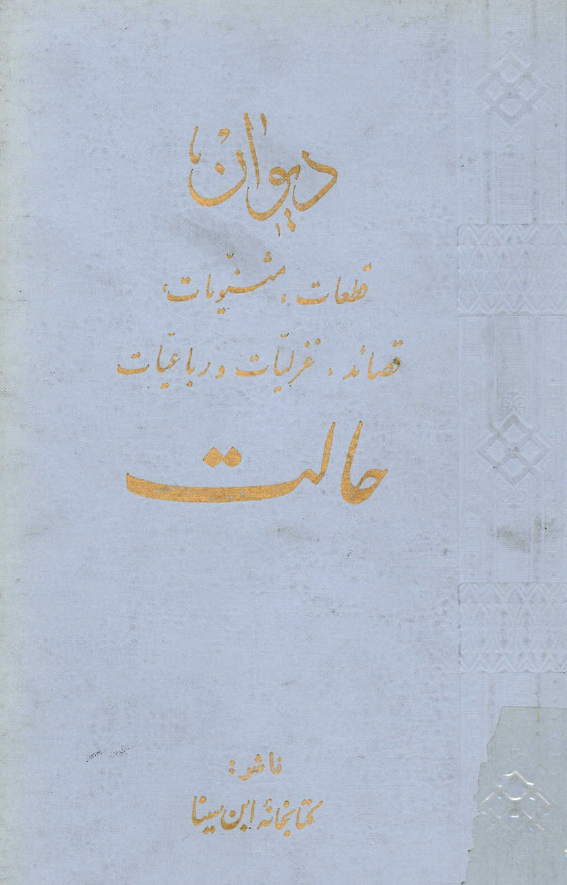 دیوان
قطعات، مثنّویات،
قصائد، غزلیّات و رباعیّات
حالت
ناشر:
کتابخانهٔ ابن سینا